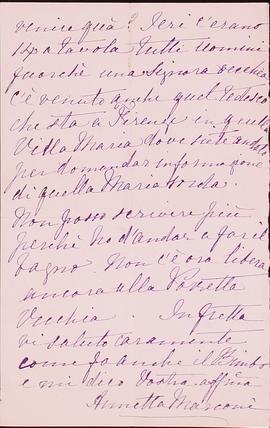 venire quà? Ieri c'erano
14 a tavola tutti uomini
fuorchè una signora vecchia
C'è venuto anche quel tedesco
che sta a Firenze in quella
Villa Maria dove siete andati
per domandar informazione
di quella Maria sorda.
Non posso scrivere più
perchè ho d'andar a far il
bagno. Non c'è ora libera
ancora alla Posetta
Vecchia. In fretta
vi saluto caramente
come fa anche il Bimbo
e mi dico Vostra affma
Annetta Marconi